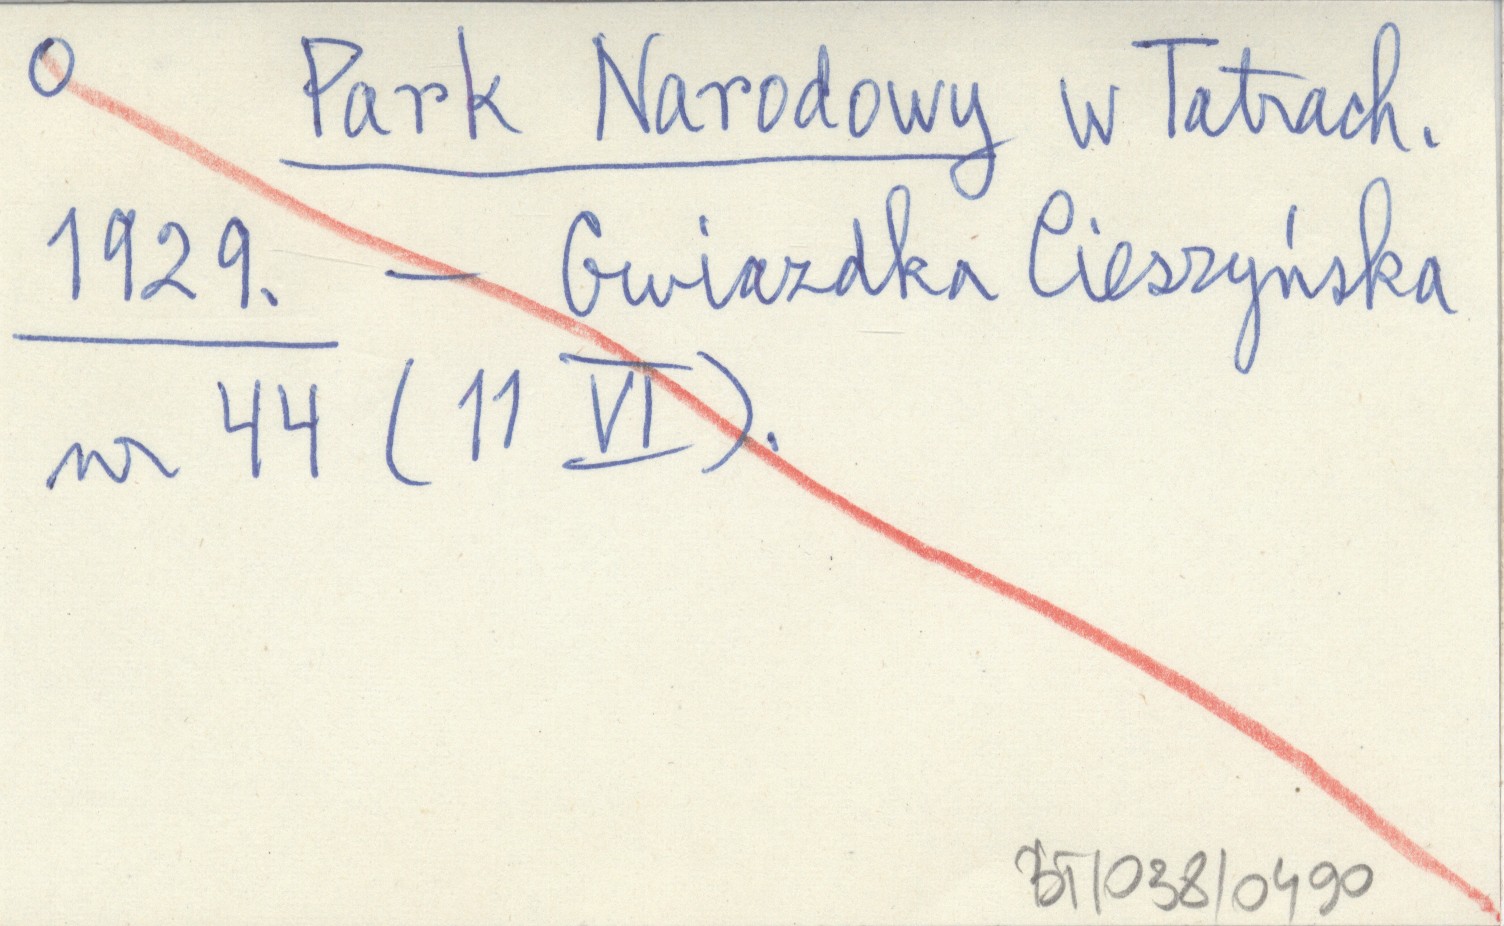 O Park Narodowy w Tatrach.
1929. — Gwiazdka Cieszyńska
nr 44 (11 VI).
BT/038/0490